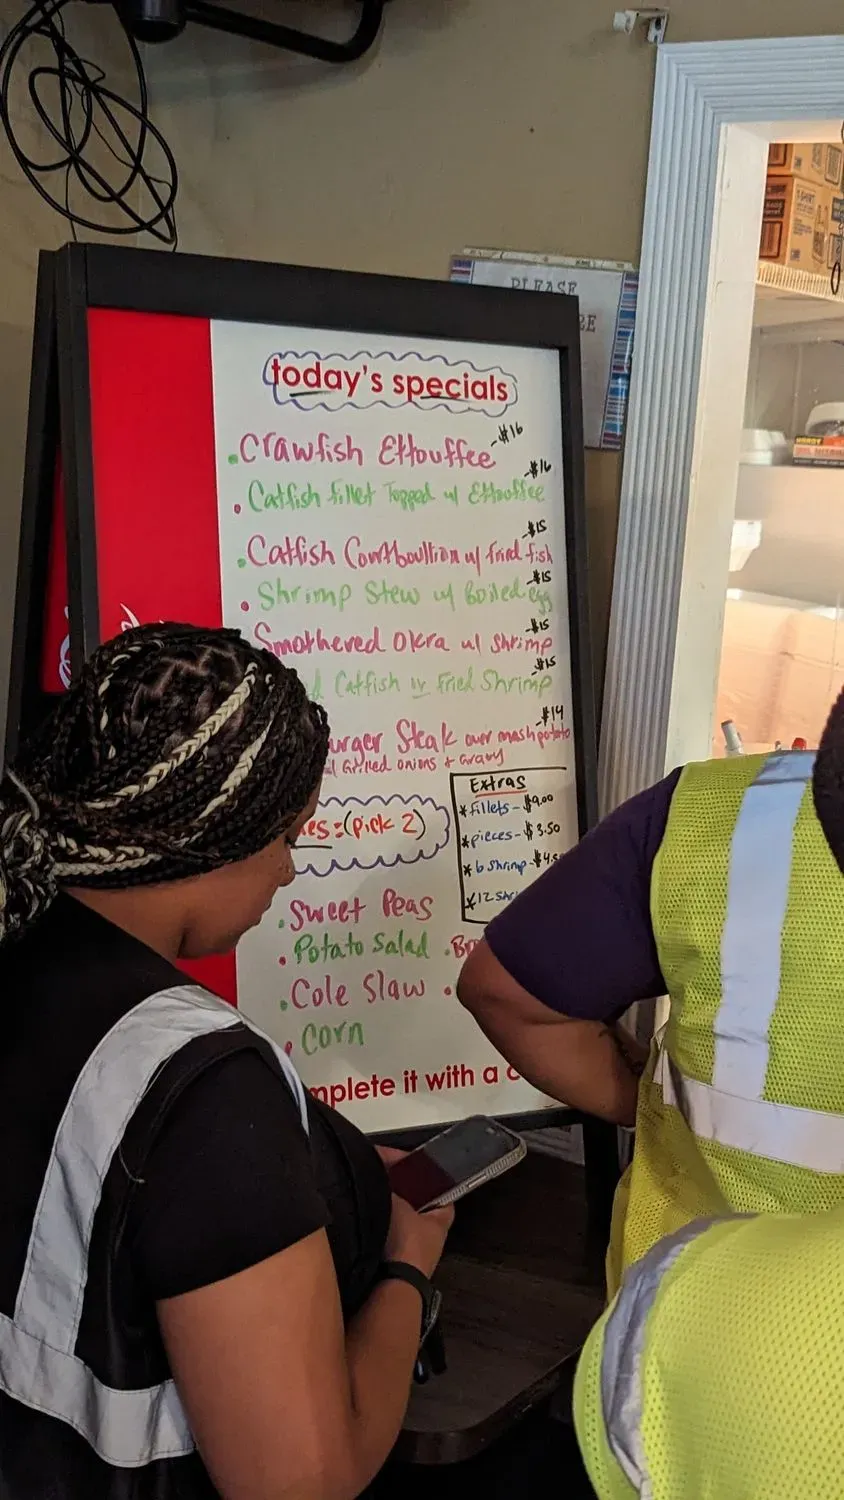 PLEASE
today's specials
• Crawfish Ettouffee -$16
• Catfish fillet Topped w/ Ettouffee -$16
• Catfish Courtboullion w/ fried fish -$15
• Shrimp Stew w/ Boiled egg -$15
Smothered Okra w/ Shrimp -$15
Catfish or Fried Shrimp -$15
urger Steak over mash potato -$14
w/ Grilled onions & Gravy
Extras
* fillets - $9.00
* pieces - $3.50
* 6 Shrimp - $4.5
* 12 Shri
es: (pick 2)
• Sweet Peas
• Potato Salad
• Cole Slaw
• Corn
mplete it with a c